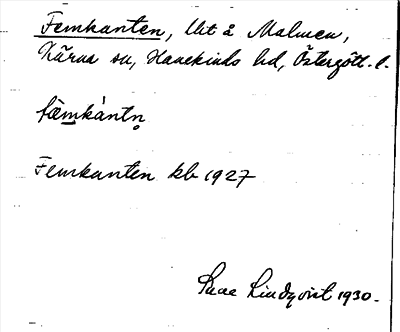 Femkanten, lht å Malmen,
Kärna sn, Hanekinds hd, Östergötl. l.
fämkàntn̥
Femkanten kb 1927
Lindqvist 1930.